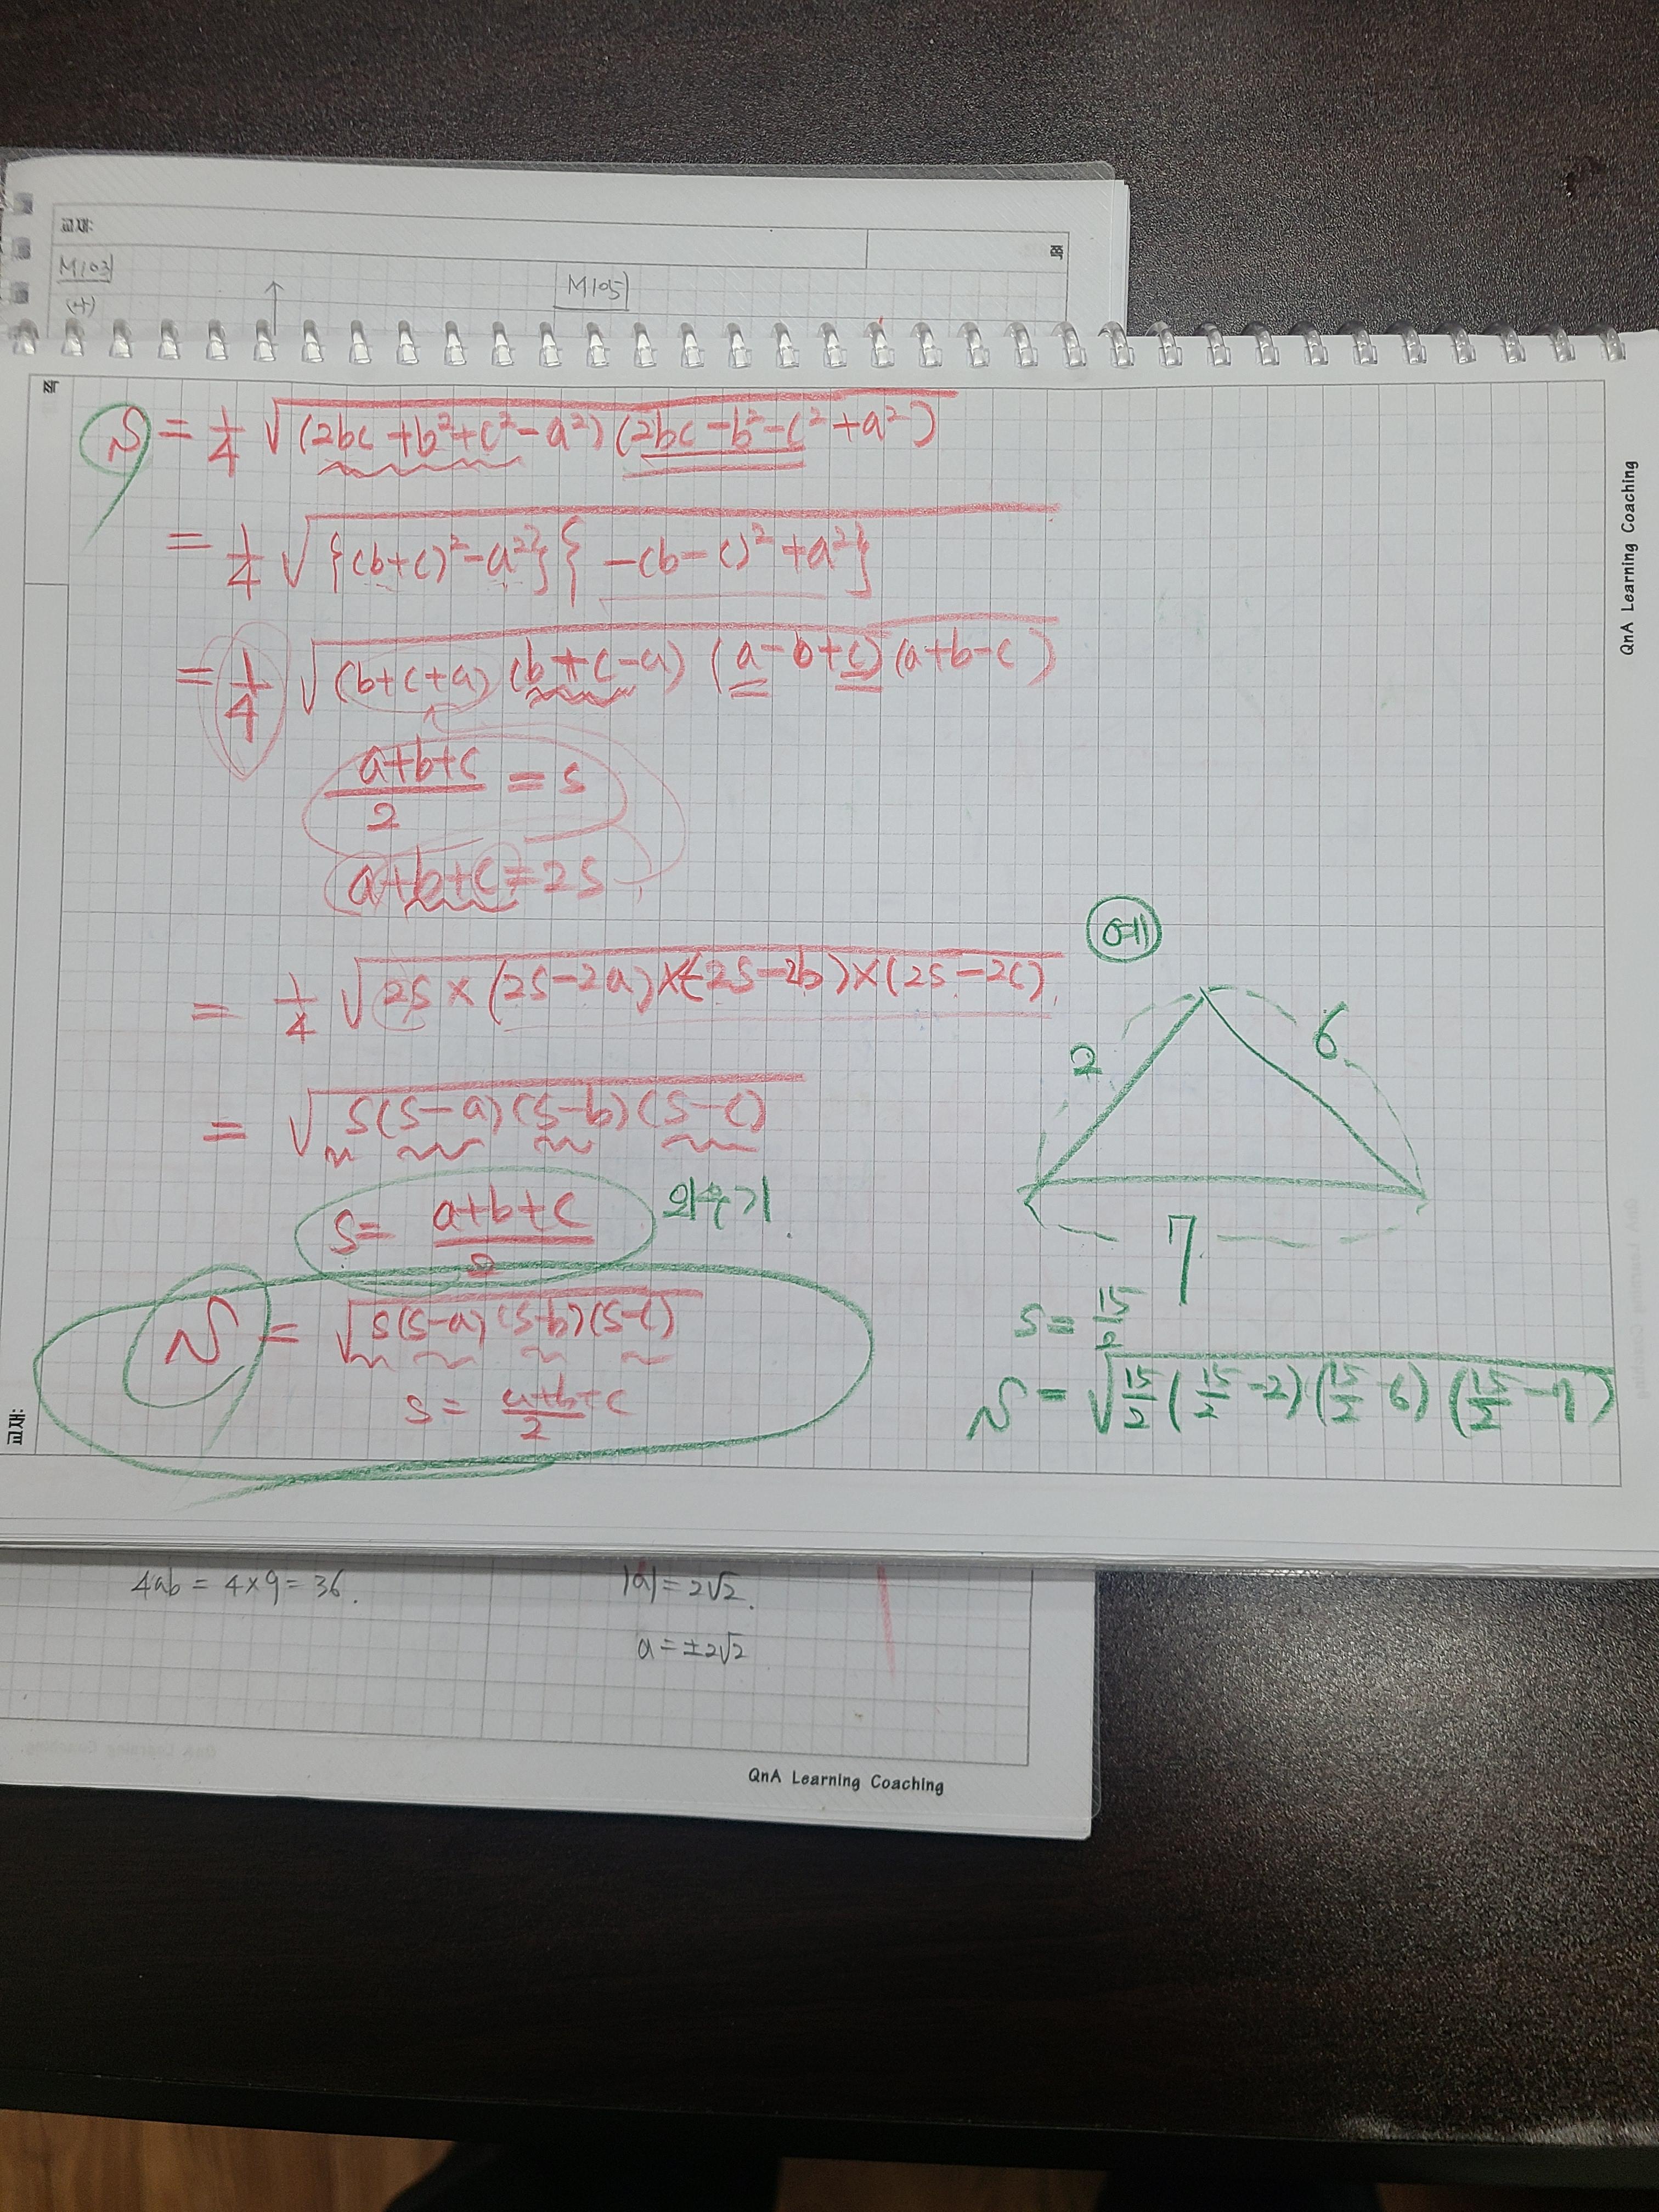 교재:
쪽
M103
(4)
M105
쪽
S = 1/4 √(2bc+b²+c²-a²)(2bc-b²-c²+a²)
= 1/4 √{(b+c)²-a²}{-(b-c)²+a²}
= 1/4 √(b+c+a)(b+c-a)(a-b+c)(a+b-c)
(a+b+c)/2 = s
a+b+c=2s
= 1/4 √2s×(2s-2a)×(2s-2b)×(2s-2c)
= √s(s-a)(s-b)(s-c)
s = (a+b+c)/2 외우기.
S = √s(s-a)(s-b)(s-c)
s = (a+b+c)/2
예
2
6
7
s = 15/2
S = √15/2(15/2-2)(15/2-6)(15/2-7)
교재:
QnA Learning Coaching
4ab = 4×9=36.
|a|=2√2.
a=±2√2
QnA Learning Coaching